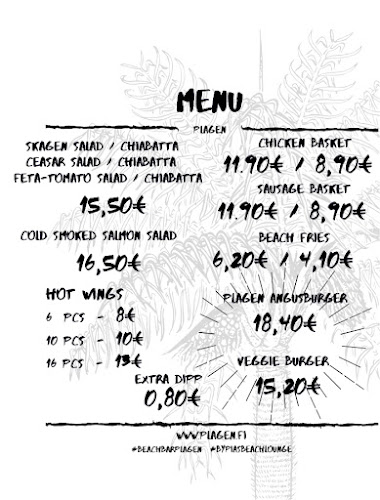 MENU
PIAGEN
SKAGEN SALAD / CHIABATTA
CEASAR SALAD / CHIABATTA
FETA-TOMATO SALAD / CHIABATTA
15,50€
COLD SMOKED SALMON SALAD
16,50€
HOT WINGS
6 PCS - 8€
10 PCS - 10€
16 PCS - 13€
EXTRA DIPP
0,80€
CHICKEN BASKET
11.90€ / 8,90€
SAUSAGE BASKET
11.90€ / 8,90€
BEACH FRIES
6,20€ / 4,10€
PIAGEN ANGUSBURGER
18,40€
VEGGIE BURGER
15,20€
WWW.PIAGEN.FI
#BEACHBARPIAGEN #BYPIASBEACHLOUNGE